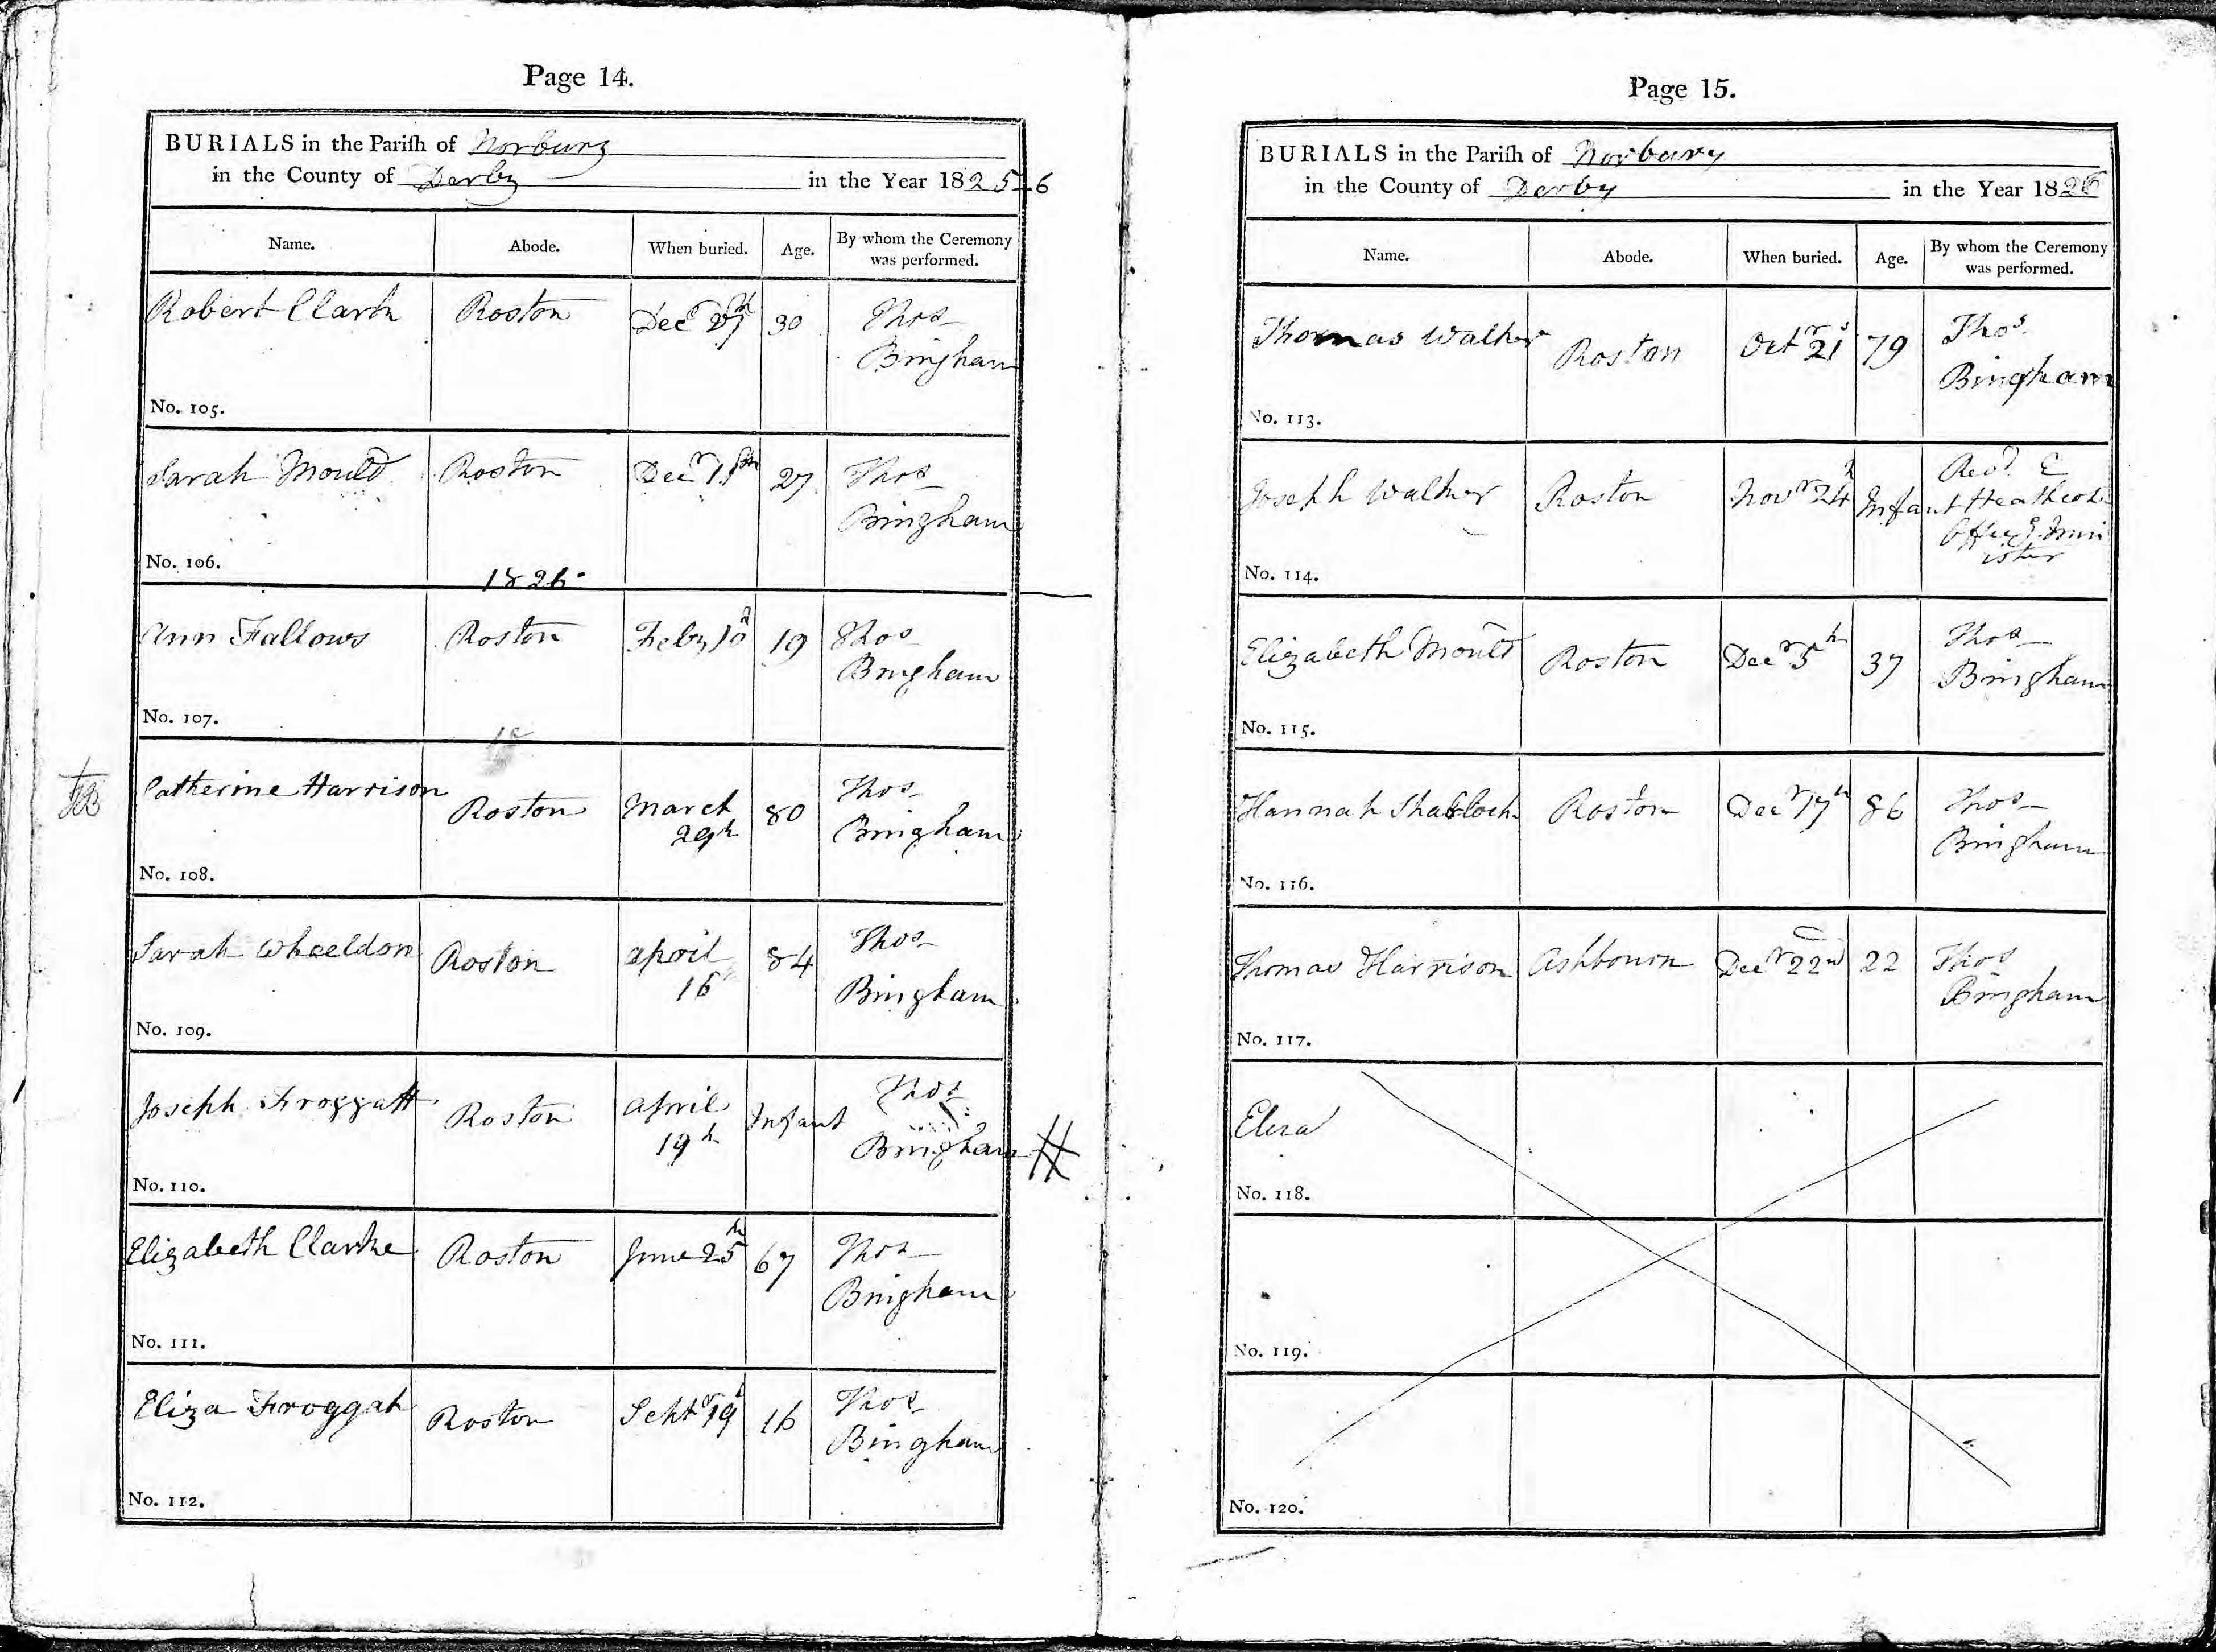 Page 14.
BURIALS in the Parish of Norbury
in the County of Derby in the Year 1825+6
Name. Abode. When buried. Age. By whom the Ceremony was performed.
Robert Clark Roston Decr 30 Thos
Bingham
No. 105.
Sarah Mould Roston Decr 27 Thos
Bingham
No. 106.
1826
Ann Fallows Roston Feby 10 19 Thos
Bingham
No. 107.
18
Catherine Harrison Roston March 29th 80 Thos
Bingham
No. 108.
Sarah Wheeldon Roston April 16 84 Thos
Bingham
No. 109.
Joseph Froggatt Roston April 19th Infant Thos
Bingham
No. 110.
Elizabeth Clarke Roston June 25th 67 Thos
Bingham
No. 111.
Eliza Froggat Roston Septr 19 16 Thos
Bingham
No. 112.
Page 15.
BURIALS in the Parish of Norbury
in the County of Derby in the Year 1826
Name. Abode. When buried. Age. By whom the Ceremony was performed.
Thomas Walker Roston Octr 21 79 Thos
Bingham
No. 113.
Joseph Walker Roston Novr 24 Infant Revd E
Heathcote
No. 114.
Elizabeth Mould Roston Decr 5th 37 Thos
Bingham
No. 115.
Hannah Roston Decr 17th 86 Thos
Bingham
No. 116.
Thomas Harrison Ashbourn Decr 22nd 22 Thos
Bingham
No. 117.
Eliza
No. 118.
No. 119.
No. 120.